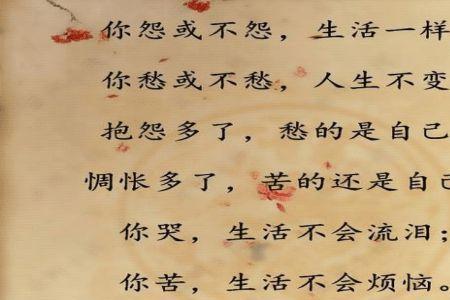 你怨或不怨，生活一样
你愁或不愁，人生不变
抱怨多了，愁的是自己
惆怅多了，苦的还是自己
你哭，生活不会流泪；
你苦，生活不会烦恼。